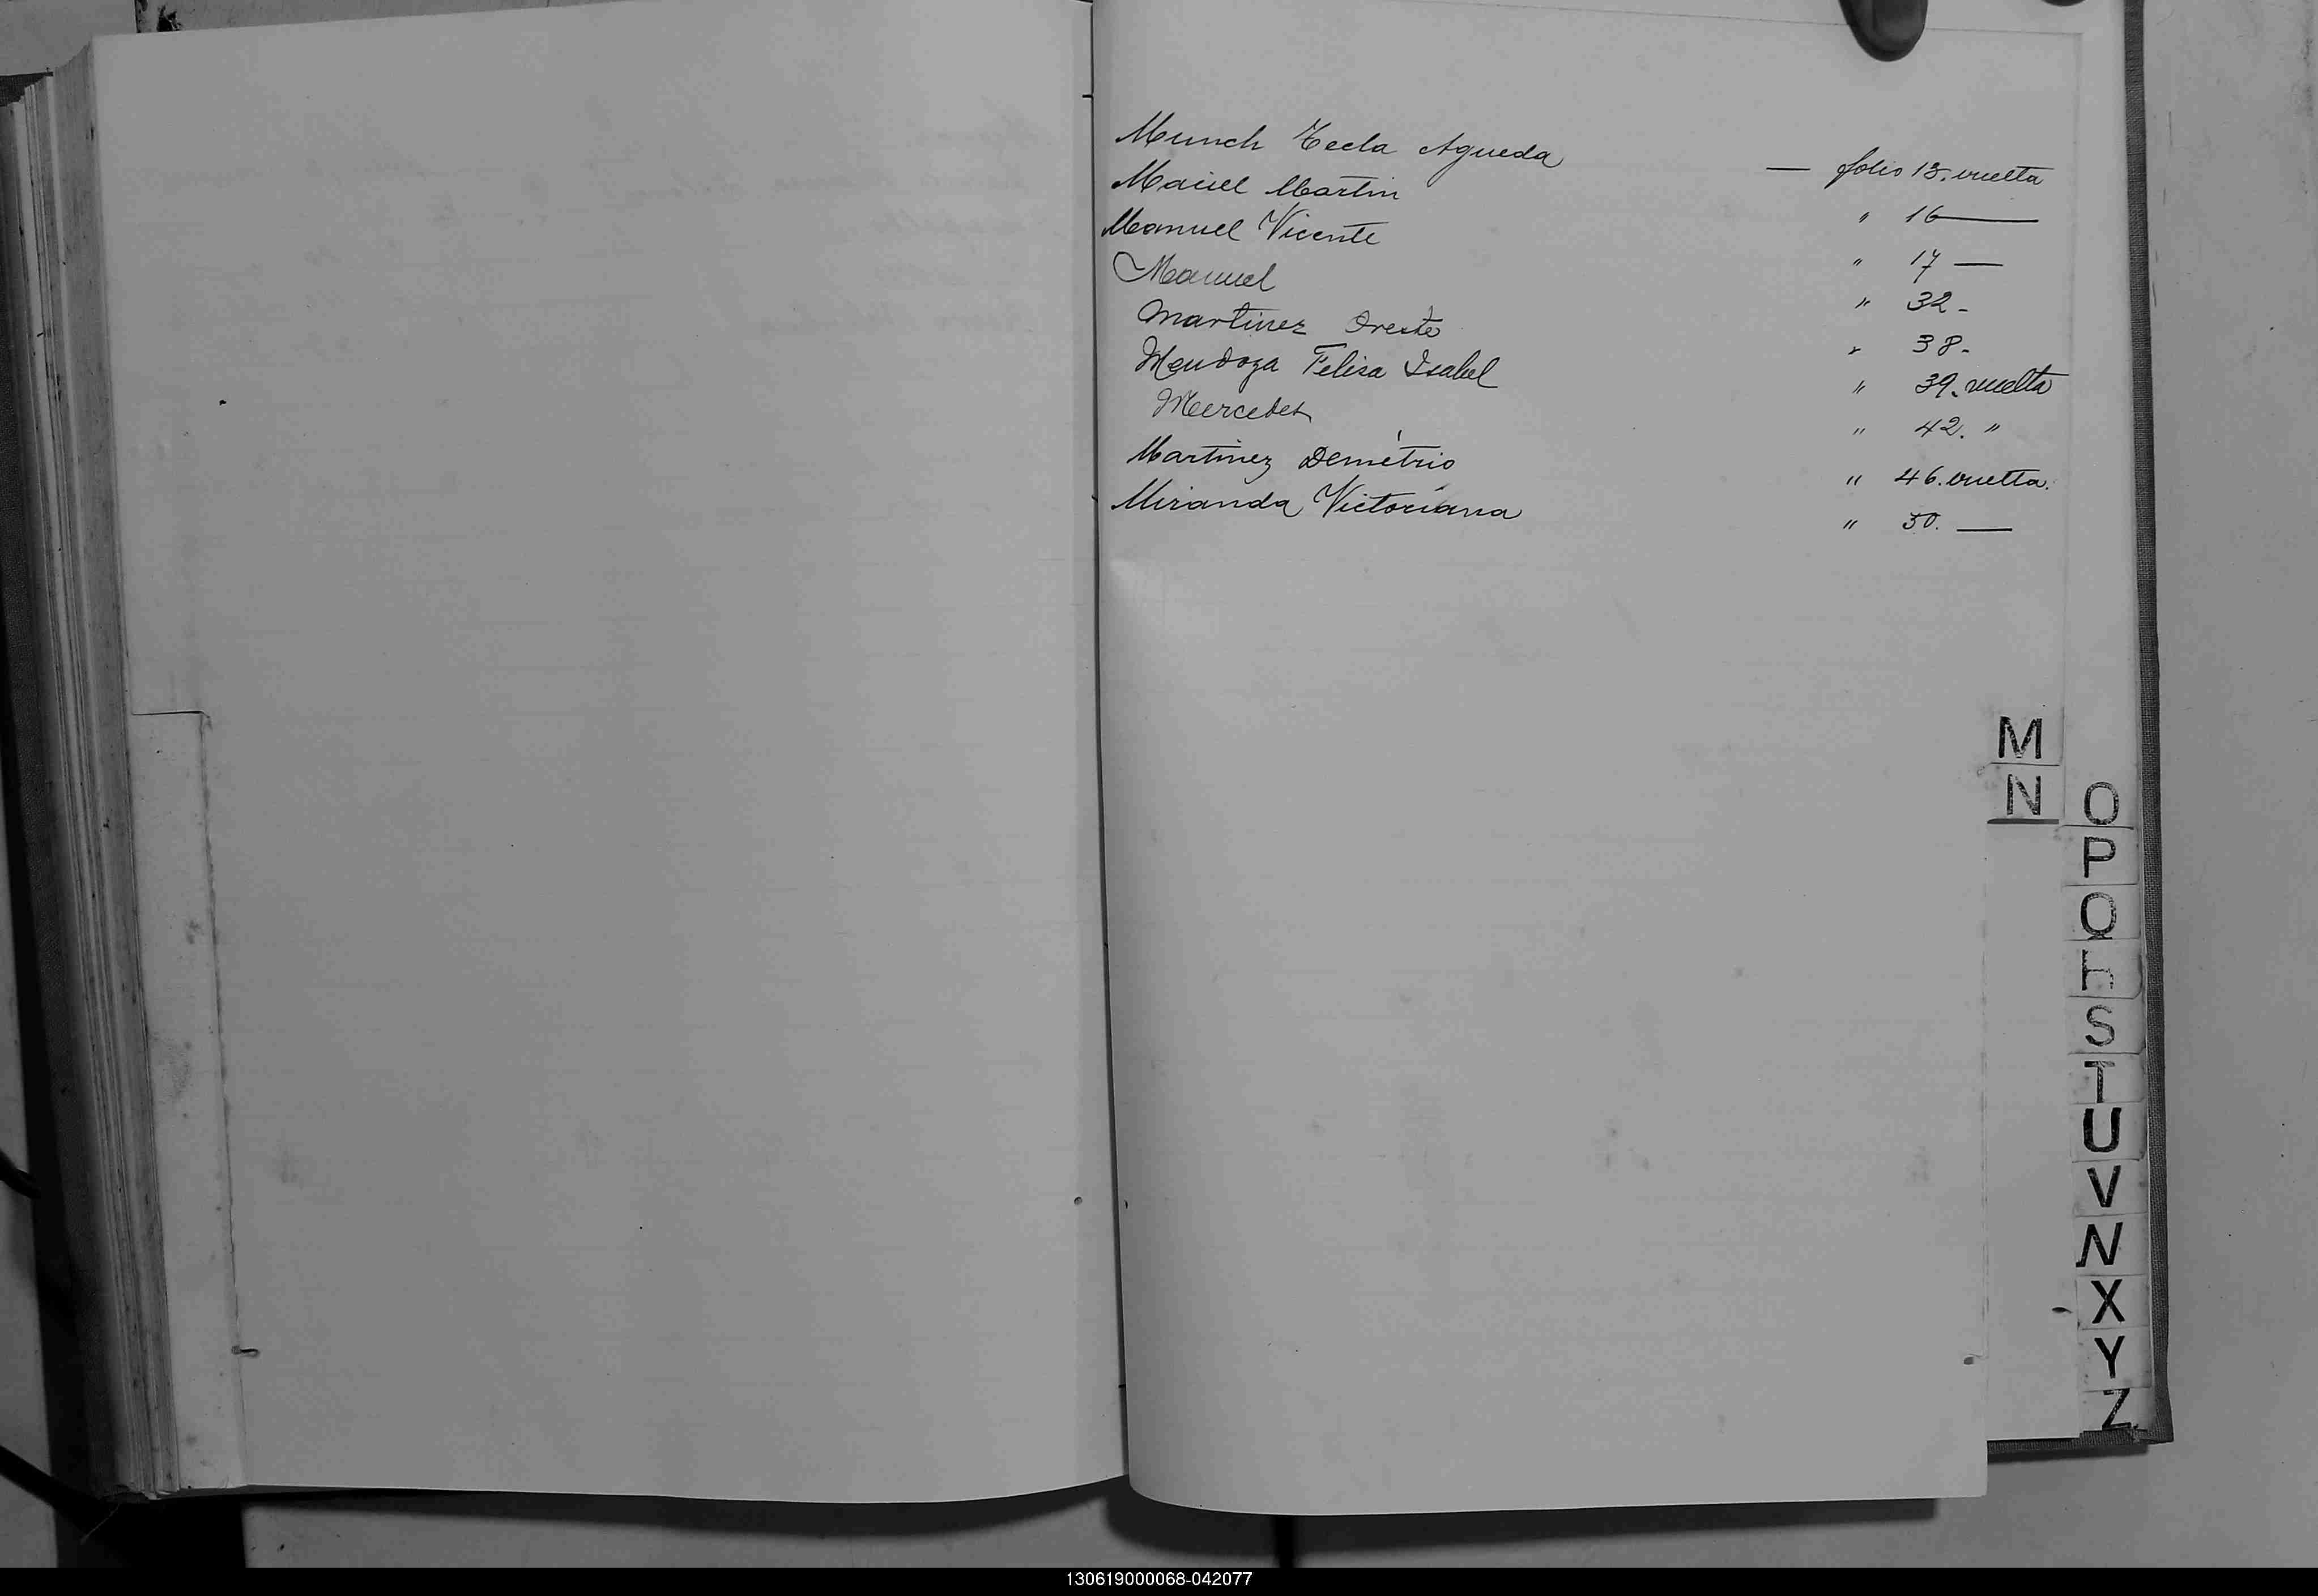 Munch Tecla Agueda — folio 13. vuelta
Maciel Martin " 16 —
Manuel Vicente " 17 —
Manuel " 32 -
Martinez Oreste " 38 -
Mendoza Felisa Isabel " 39. vuelta
Mercedes " 42. "
Martinez Demétrio " 46. vuelta.
Miranda Victoriana " 50. —
M
N
O
P
Q
R
S
T
U
V
X
Y
Z
130619000068-042077